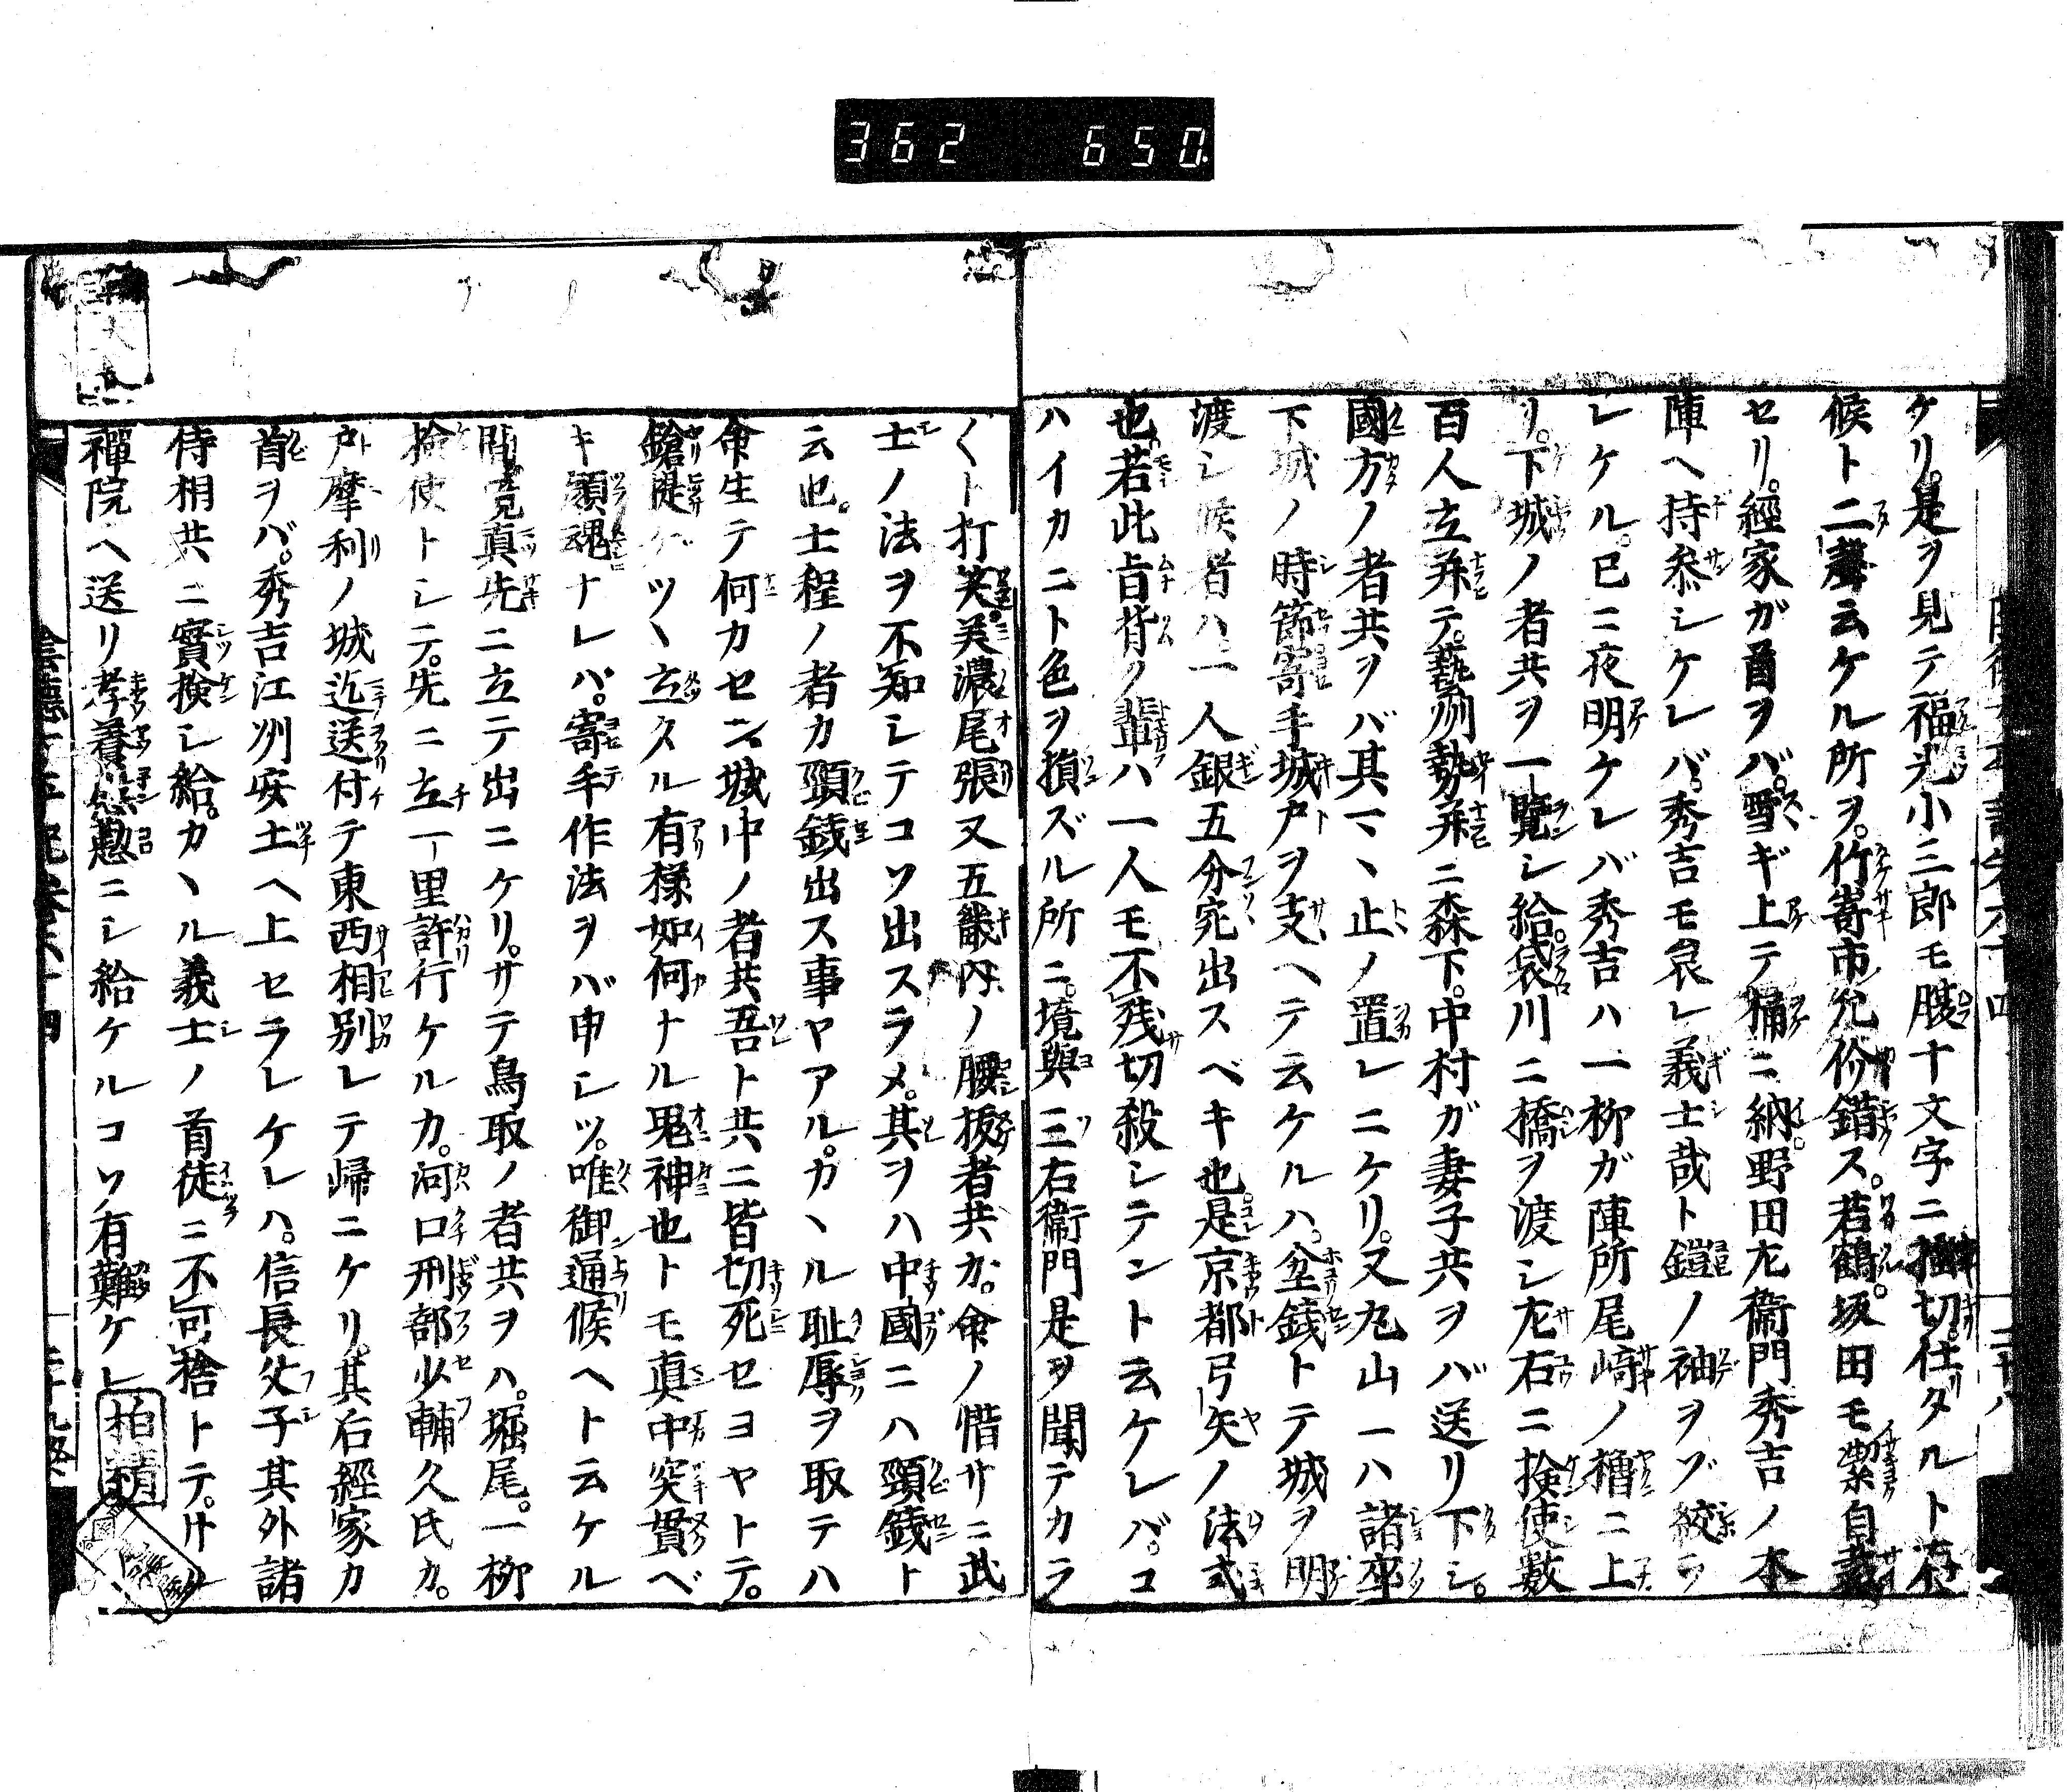 362 650
ケリ。是ヲ見テ福光小三郎モ腹十文字ニ掻切仕タルト
候ト二聲云ケル所ヲ。竹嵜市允伱錯ス。若鶴。坂田モ潔自裁
セリ。經家ガ首ヲバ。雪ギ上テ桶ニ納。野田左衞門秀吉ノ本
陣ヘ持參シケレバ。秀吉モ哀レ義士哉ト鎧ノ袖ヲゾ絞ラ
レケル。已ニ夜明ケレバ秀吉ハ一柳ガ陣所尾﨑ノ櫓ニ上
リ。下城ノ者共ヲ一覽シ給。袋川ニ橋ヲ渡シ左右ニ撿使數
百人立并テ。藝州勢并ニ森下。中村ガ妻子共ヲバ送リ下シ。
國方ノ者共ヲバ其マヽ止ノ置レニケリ。又丸山ハ諸卒
下城ノ時節寄手城戸ヲ支ヘテ云ケルハ。埃錢トテ城ヲ明
渡シ候者ハ一人銀五分宛出スベキ也。是京都弓矢ノ法式
也。若此旨背ク輩ハ一人モ不残切殺シテント云ケレバ。コ
ハイカニト色ヲ損ズル所ニ。境與三右衞門是ヲ聞テカラ
〱ト打笑。美濃尾張又五畿内ノ腰抜者共カ。命ノ惜サニ武
士ノ法ヲ不知シテコソ出スラメ。其ヲハ中國ニハ頸錢ト
云也。士程ノ者カ頸錢出ス事ヤアル。カヽル耻辱ヲ取テハ
命生テ何カセン。城中ノ者共吾ト共ニ皆切死セヨヤトテ。
鎗提ケツヽ立タル有樣如何ナル鬼神也トモ真中突貫ベ
キ頬魂ナレバ。寄手作法ヲバ申シツ。唯御通候ヘト云ケル
間。寛真先ニ立テ出ニケリ。サテ鳥取ノ者共ヲハ。堀尾。一柳
撿使トシテ。先ニ立一里許行ケルカ。河口刑部少輔久氏カ。
戸摩利ノ城迄送付テ東西相別レテ歸ニケリ。其后經家カ
首ヲバ。秀吉江州安土ヘ上セラレケレハ。信長父子其外諸
侍相共ニ實撿シ給。カヽル義士ノ首徒ニ不可捨トテ。
禪院ヘ送リ孝養懇ニシ給ケルコソ有難ケレ